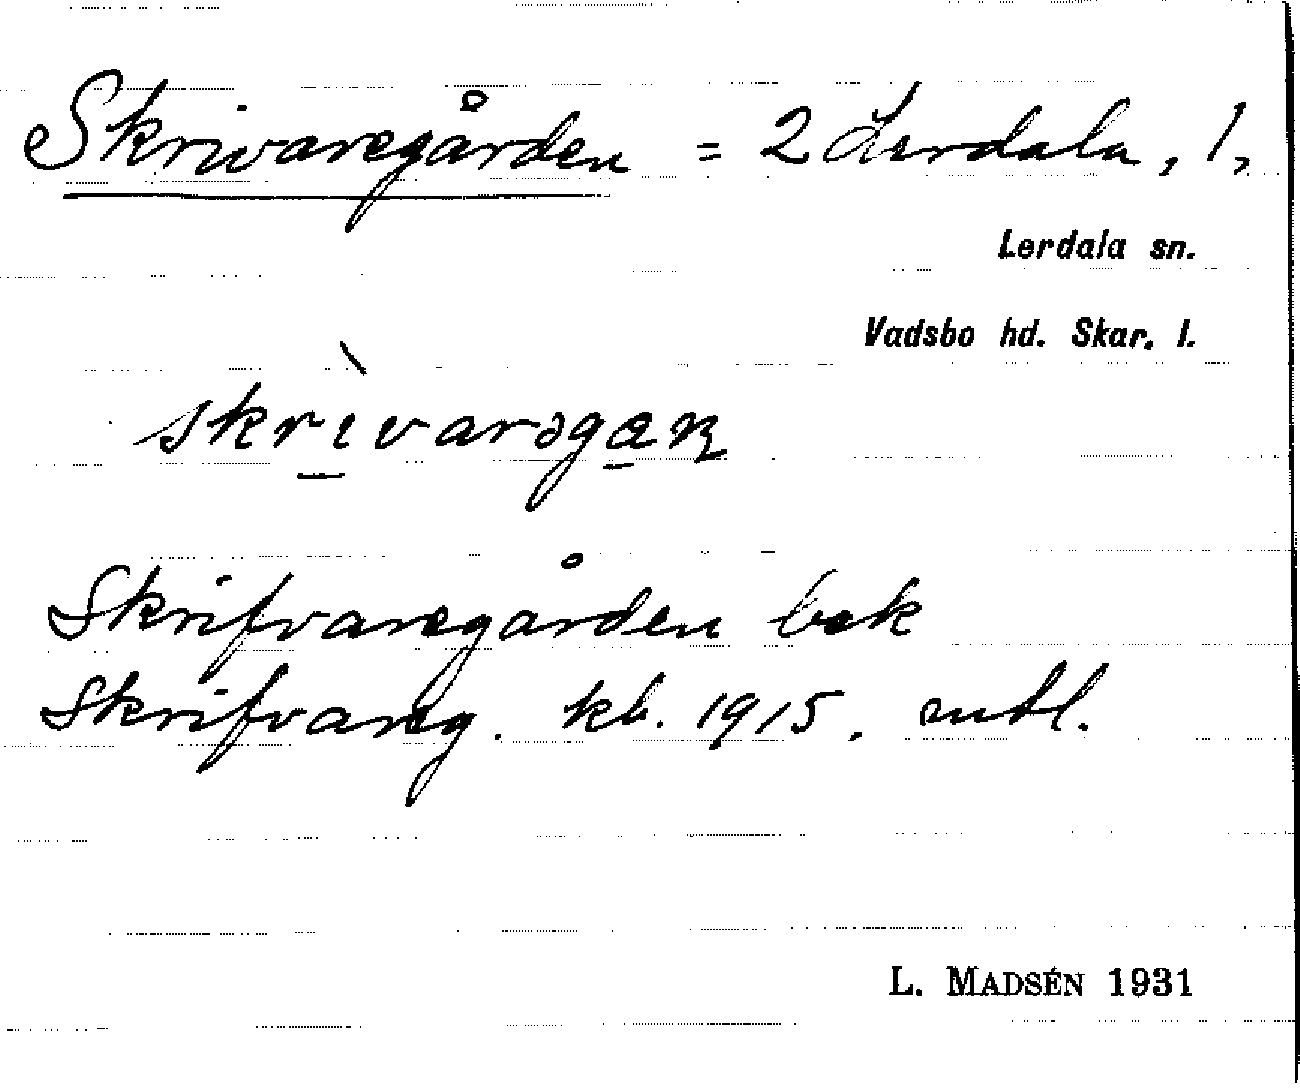 Skrivaregården = 2 Lerdala, 1,
Lerdala sn.
Vadsbo hd. Skar. l.
skrìvarəgaɳ
Skrifvaregården bek
Skrifvareg. kb. 1915.
L. MADSÉN 1931